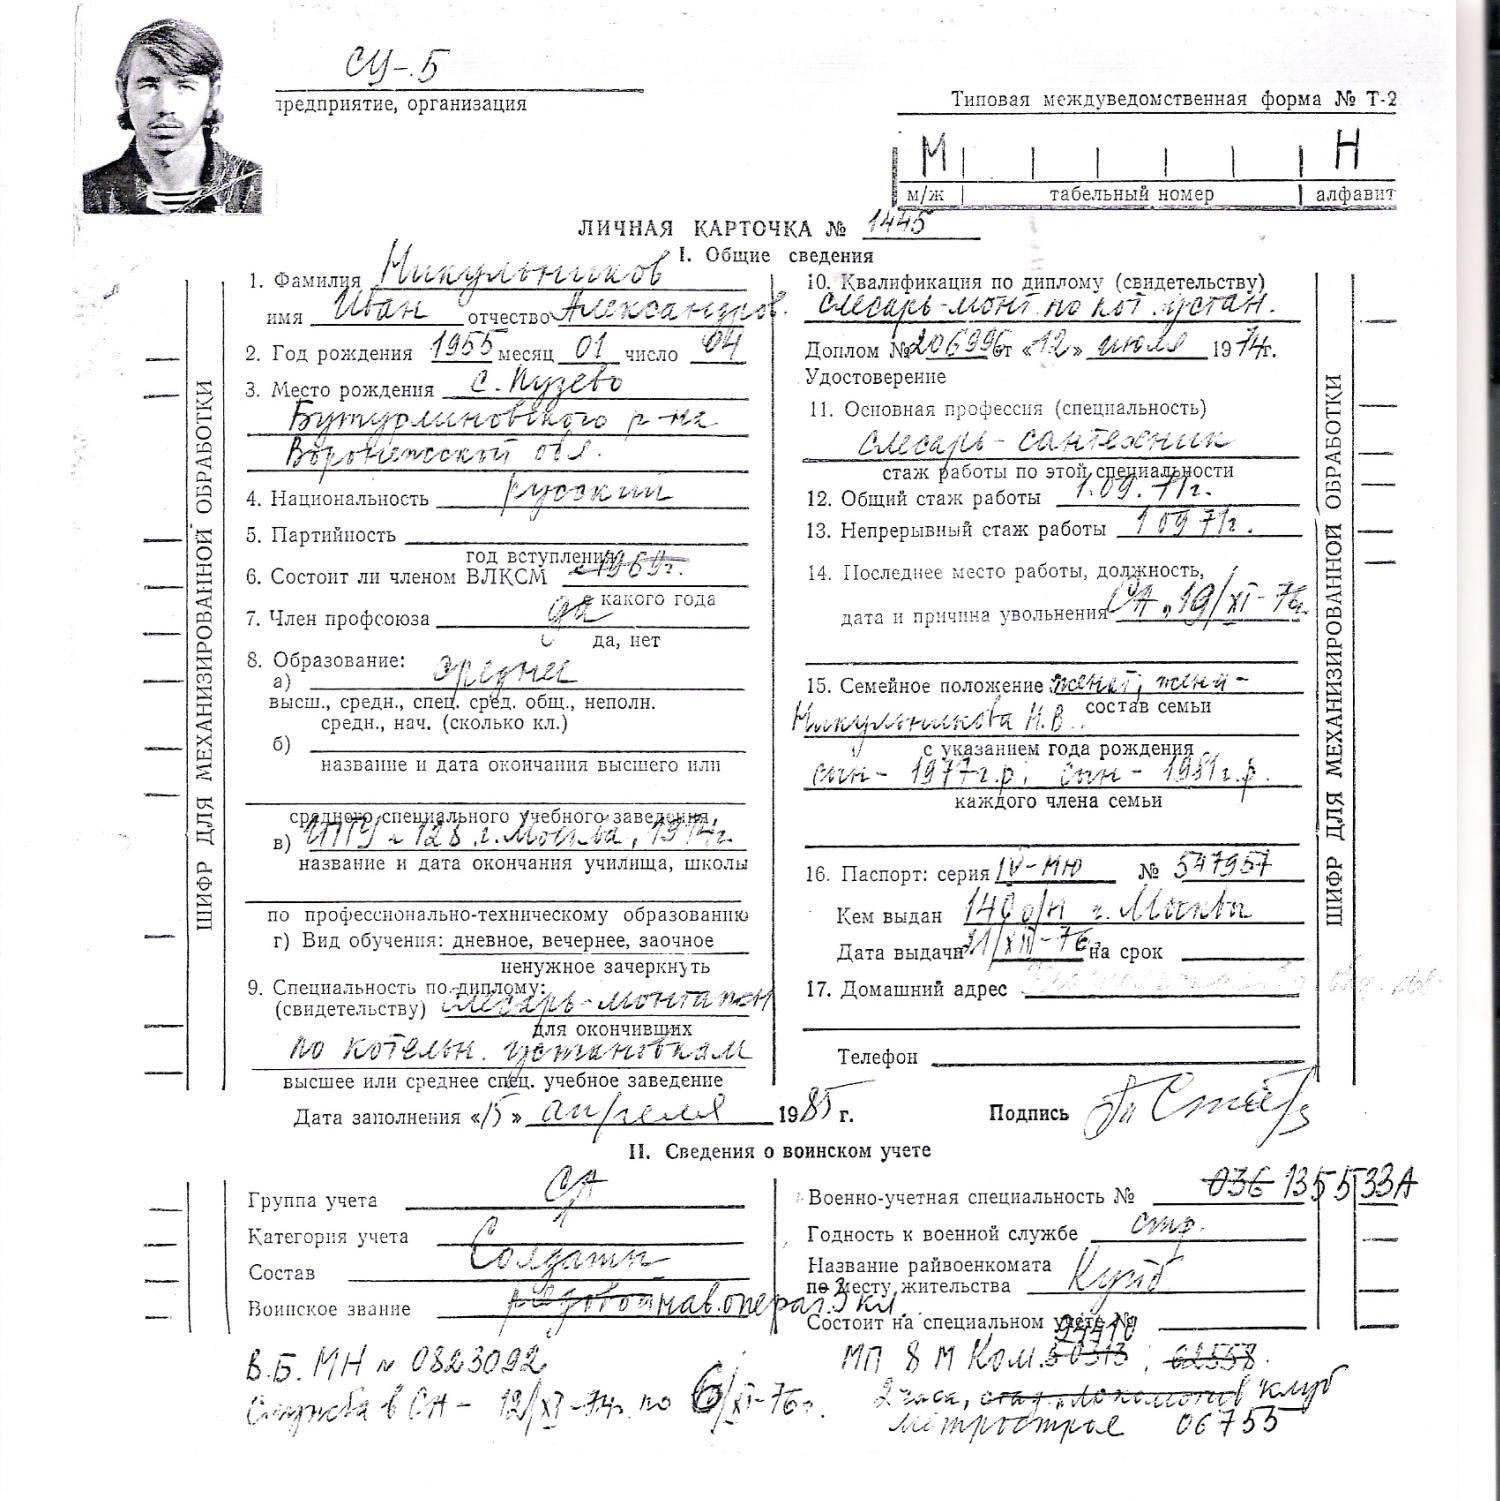 СУ-5
предприятие, организация
Типовая междуведомственная форма № Т-2
М Н
м/ж табельный номер алфавит
ЛИЧНАЯ КАРТОЧКА № 1445
I. Общие сведения
1. Фамилия Никульников
имя Иван отчество Александров.
2. Год рождения 1955 месяц 01 число 04
3. Место рождения с. Пузево
Бутурлиновского р-на
Воронежской обл.
4. Национальность русский
5. Партийность
год вступления
6. Состоит ли членом ВЛКСМ с 1969г.
с какого года
7. Член профсоюза да
да, нет
8. Образование:
а) среднее
высш., средн., спец. сред. общ., неполн.
средн., нач. (сколько кл.)
б)
название и дата окончания высшего или
среднего специального учебного заведения
в) ГПТУ № 128 г. Москва, 1974г.
название и дата окончания училища, школы
по профессионально-техническому образованию
г) Вид обучения: дневное, вечернее, заочное
ненужное зачеркнуть
9. Специальность по диплому:
(свидетельству) слесарь-монтажн
для окончивших
по котельн. установкам
высшее или среднее спец. учебное заведение
10. Квалификация по диплому (свидетельству)
слесарь-монт. по кот. устан.
Доплом № 206996 от «12» июля 1974г.
Удостоверение
11. Основная профессия (специальность)
слесарь-сантехник
стаж работы по этой специальности
12. Общий стаж работы 1.09.71г.
13. Непрерывный стаж работы 1 09 71г.
14. Последнее место работы, должность,
дата и причина увольнения СА, 19/XI-76г.
15. Семейное положение женат, жена-
состав семьи
Никульникова Н.В.
с указанием года рождения
сын - 1977г.р; сын - 1981г.р.
каждого члена семьи
16. Паспорт: серия IV-МЮ № 547957
Кем выдан 140 о/м г. Москвы
Дата выдачи 21/XII-76г. на срок
17. Домашний адрес
Телефон
Дата заполнения «15» апреля 1985 г. Подпись
ШИФР ДЛЯ МЕХАНИЗИРОВАННОЙ ОБРАБОТКИ
ШИФР ДЛЯ МЕХАНИЗИРОВАННОЙ ОБРАБОТКИ
II. Сведения о воинском учете
Группа учета СА
Категория учета
Состав Солдаты
Воинское звание рядовой мав. операт. 3 кл.
Военно-учетная специальность № 036 1355533А
Годность к военной службе стр.
Название райвоенкомата
по месту жительства Куйб
Состоит на специальном учете №
В.Б. МН № 0823092
Служба в СА - 12/XI-74г. по 6/XI-76г.
МП 8 М Ком. 50313; 62558.
2 часа, клуб
метростроя 06755